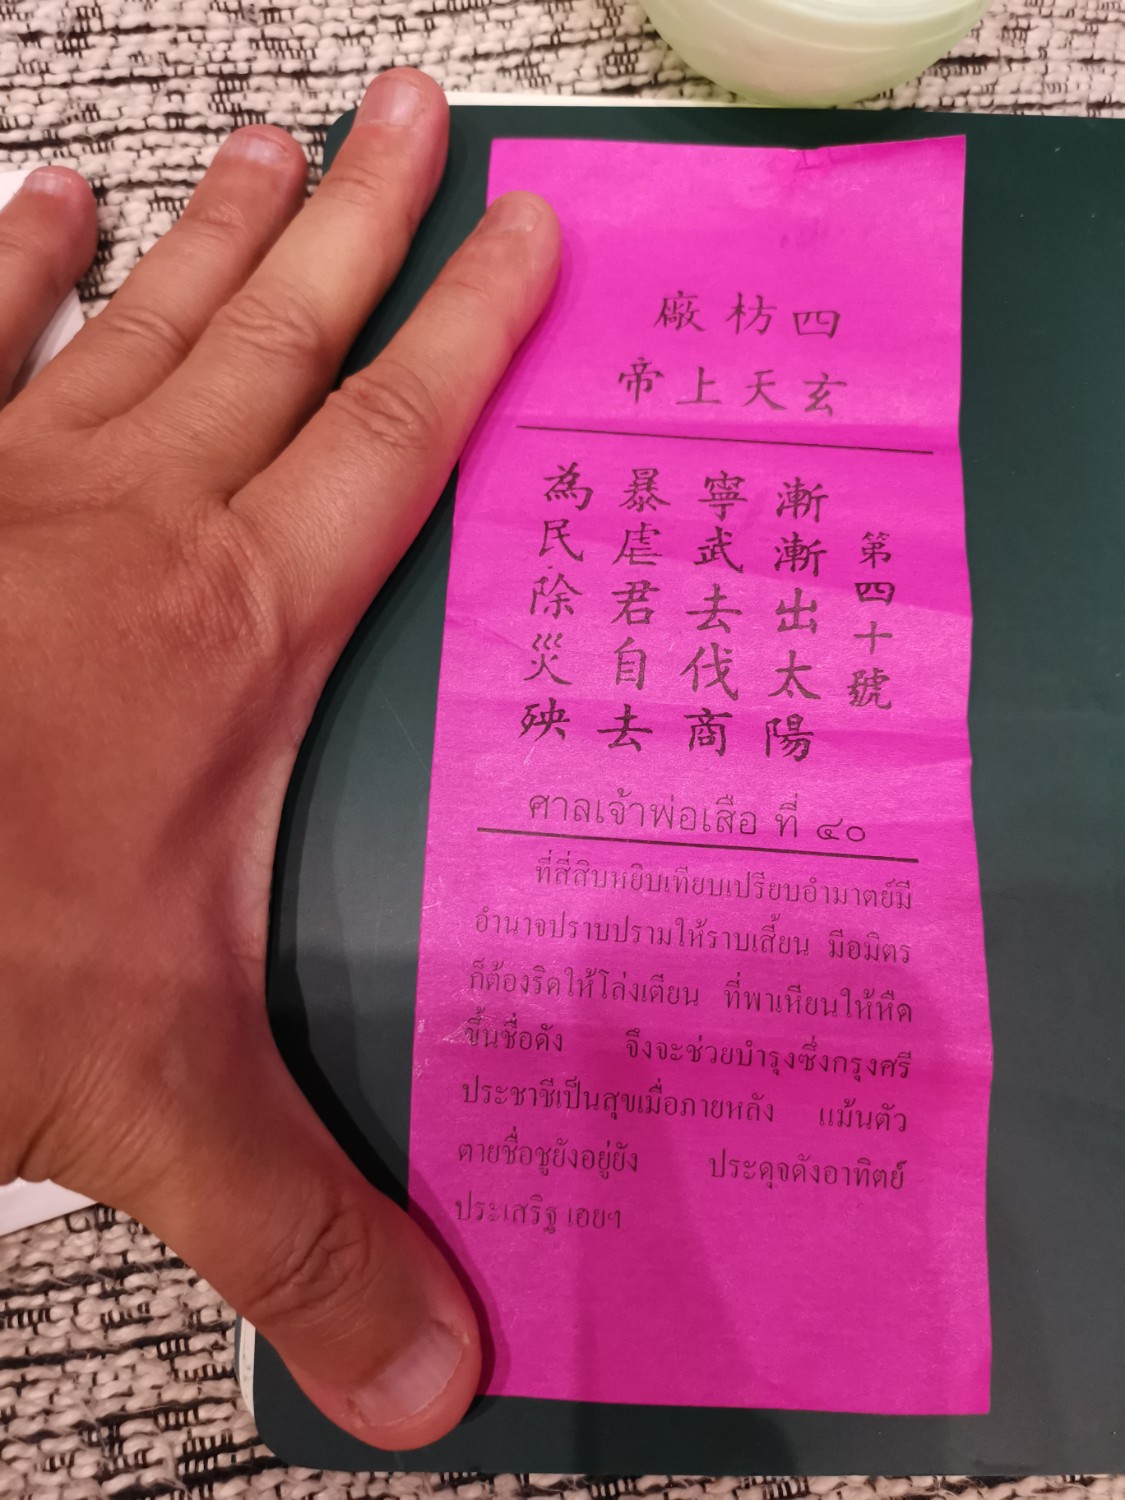 四枋廠
玄天上帝
第四十號
漸漸出太陽
寧武去伐商
暴虐君自去
為民除災殃
ศาลเจ้าพ่อเสือ ที่ ๔๐
ที่สี่สิบหยิบเทียบเปรียบอำมาตย์มี
อำนาจปราบปรามให้ราบเสี้ยน มีอมิตร
ก็ต้องริดให้โล่งเตียน ที่พาเหียนให้หืด
ขึ้นชื่อดัง จึงจะช่วยบำรุงซึ่งกรุงศรี
ประชาชีเป็นสุขเมื่อภายหลัง แม้นตัว
ตายชื่อชูยังอยู่ยัง ประดุจดังอาทิตย์
ประเสริฐ เอยฯ